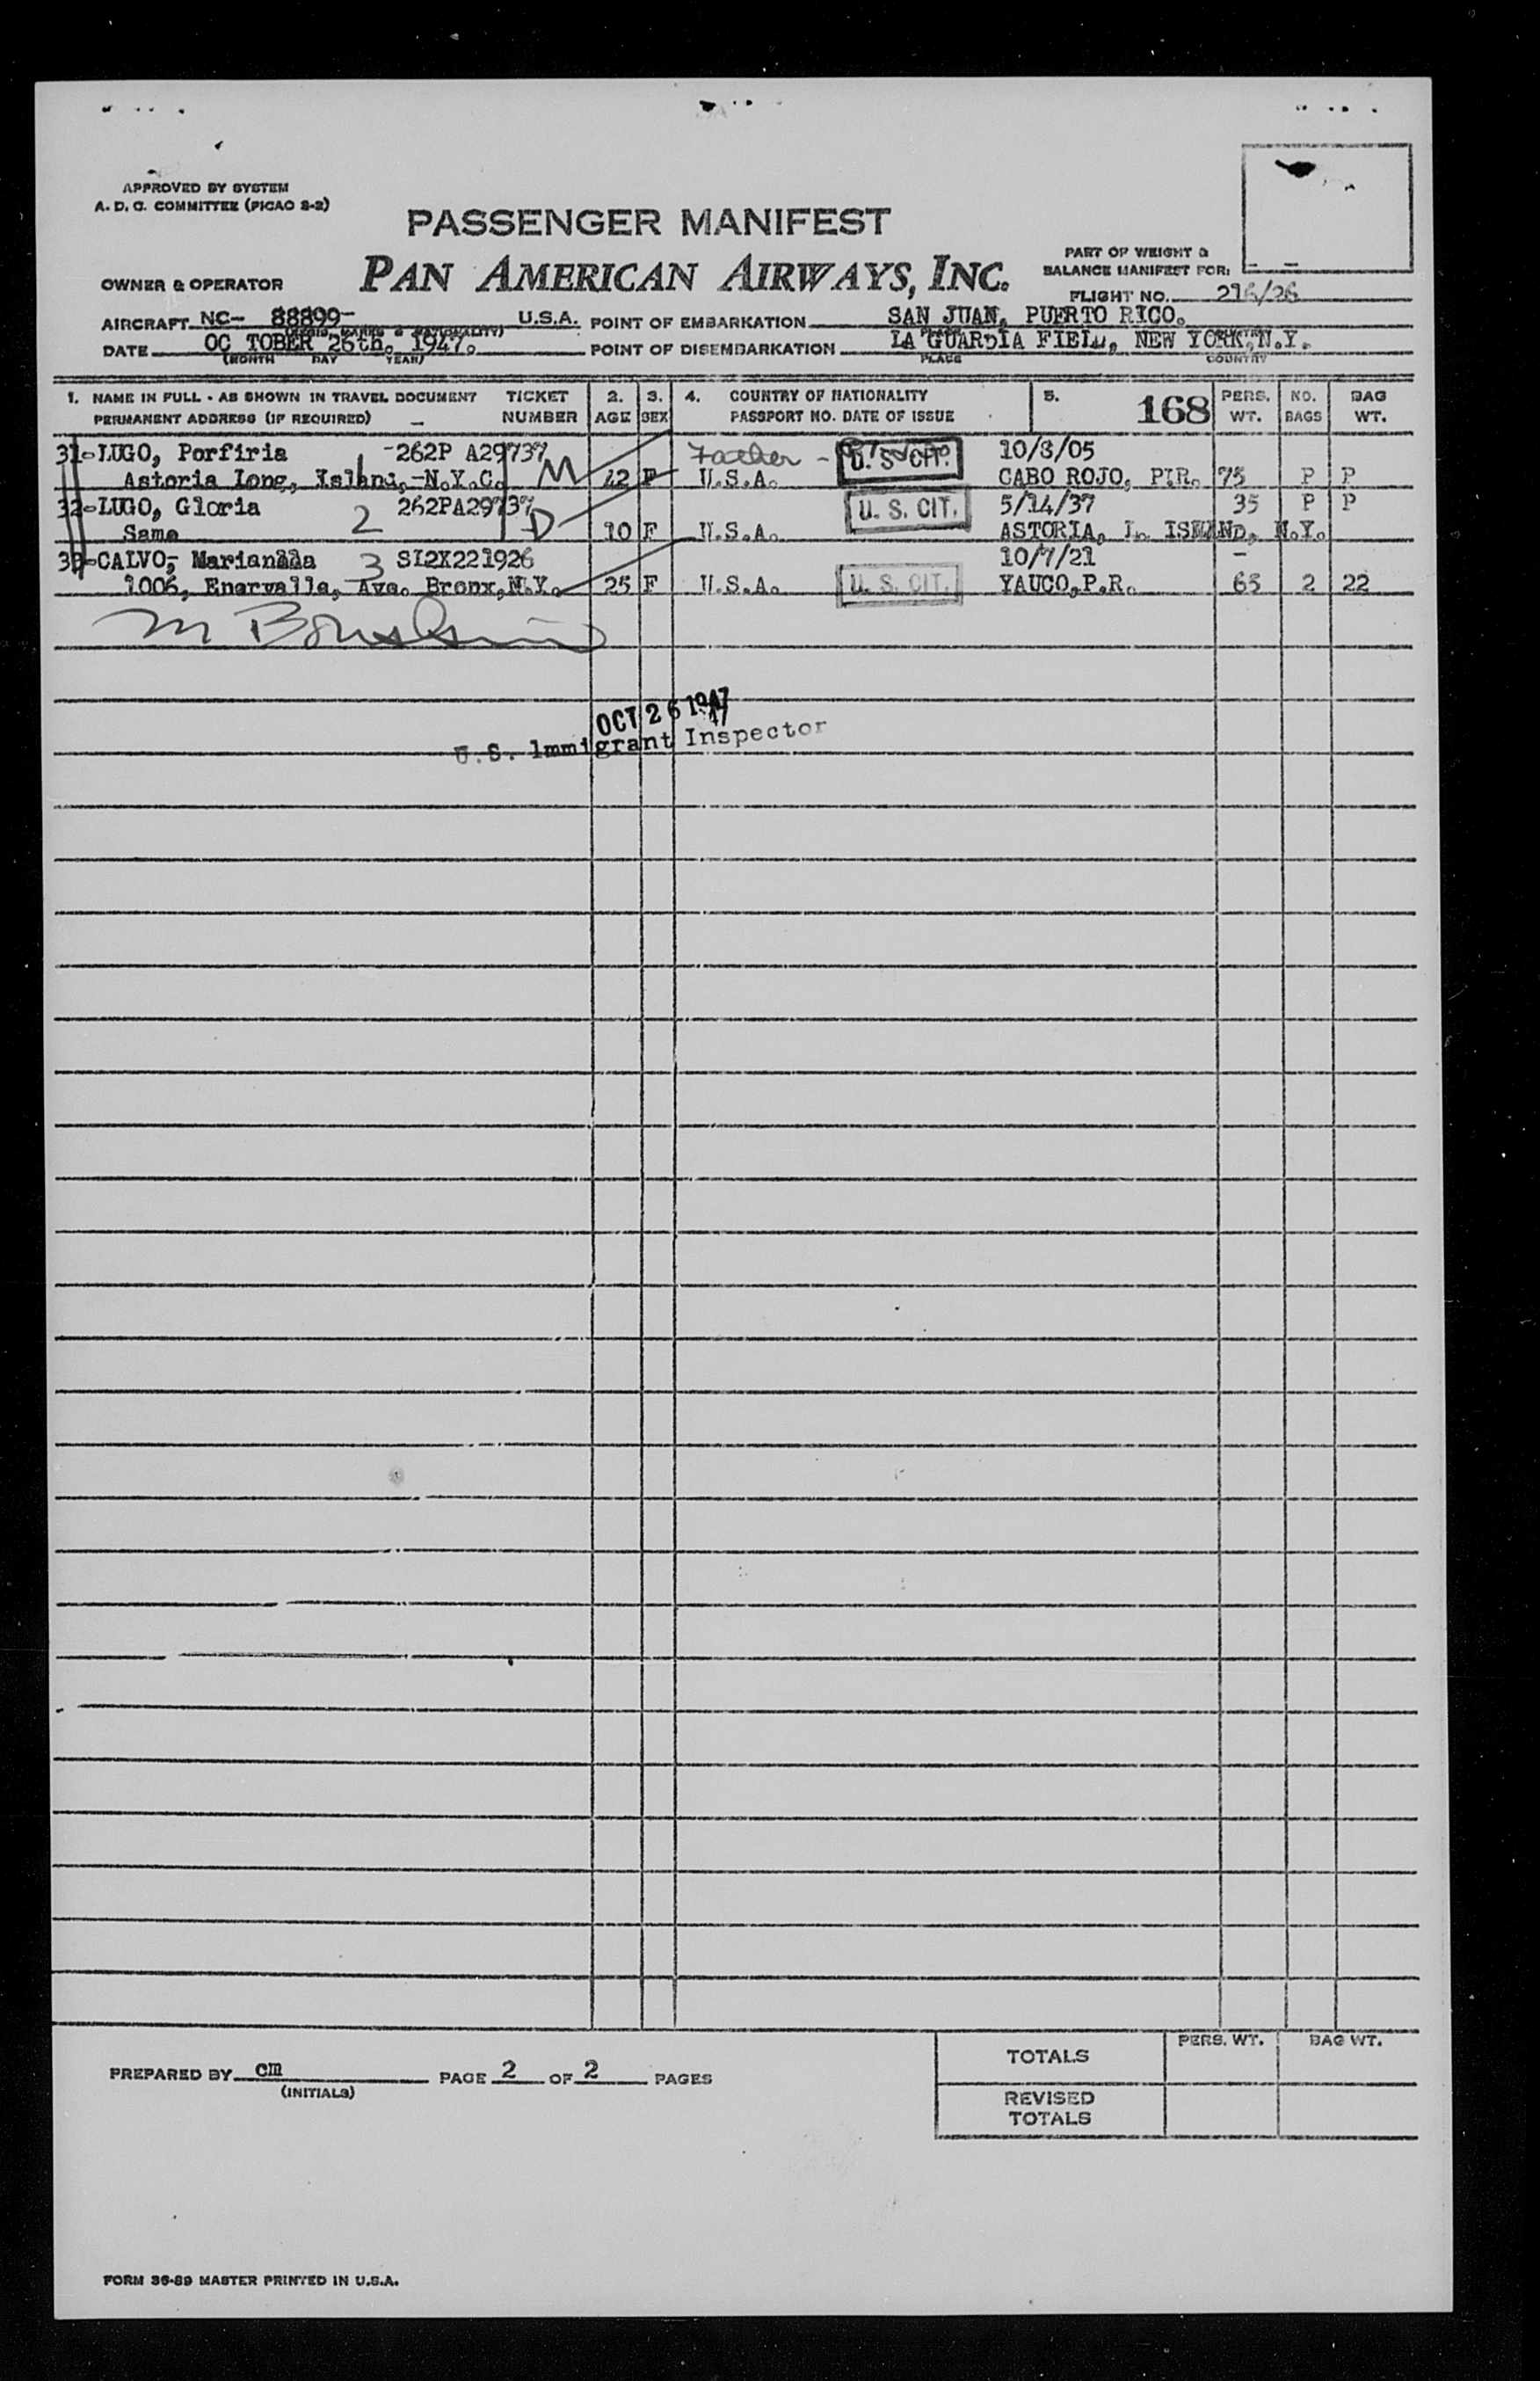 APPROVED BY SYSTEM
A. D. C. COMMITTEE (PICAO S-2)
PASSENGER MANIFEST
PAN AMERICAN AIRWAYS, INC.
OWNER & OPERATOR
PART OF WEIGHT &
BALANCE MANIFEST FOR:
FLIGHT NO. 216/26
AIRCRAFT NC- 88899- U.S.A. POINT OF EMBARKATION SAN JUAN, PUERTO RICO.
DATE OC TOBER 26th, 1947. POINT OF DISEMBARKATION LA GUARDIA FIELD, NEW YORK, N.Y.
(MONTH DAY YEAR) PLACE COUNTRY
1. NAME IN FULL - AS SHOWN IN TRAVEL DOCUMENT TICKET 2. 3. 4. COUNTRY OF NATIONALITY 5. 168 PERS. NO. BAG
PERMANENT ADDRESS (IF REQUIRED) NUMBER AGE SEX PASSPORT NO. DATE OF ISSUE WT. BAGS WT.
31-LUGO, Porfiria -262P A29737 Father - U. S. CIT. 10/3/05
Astoria Long, Island,-N.Y.C. 1 M 42 F U.S.A. CABO ROJO, P.R. 75 P P
32-LUGO, Gloria 262PA29737 U. S. CIT. 5/14/37 35 P P
Same 2 D 10 F U.S.A. ASTORIA, L. ISLAND, N.Y.
33-CALVO,- 3 SI2X221926 10/7/21 -
1006, Ave. Bronx, N.Y. 25 F U.S.A. U. S. CIT. YAUCO, P.R. 65 2 22
OCT 26 1947
U.S. Immigrant Inspector
PREPARED BY cm PAGE 2 OF 2 PAGES
(INITIALS)
PERS. WT. BAG WT.
TOTALS
REVISED
TOTALS
FORM 36-89 MASTER PRINTED IN U.S.A.